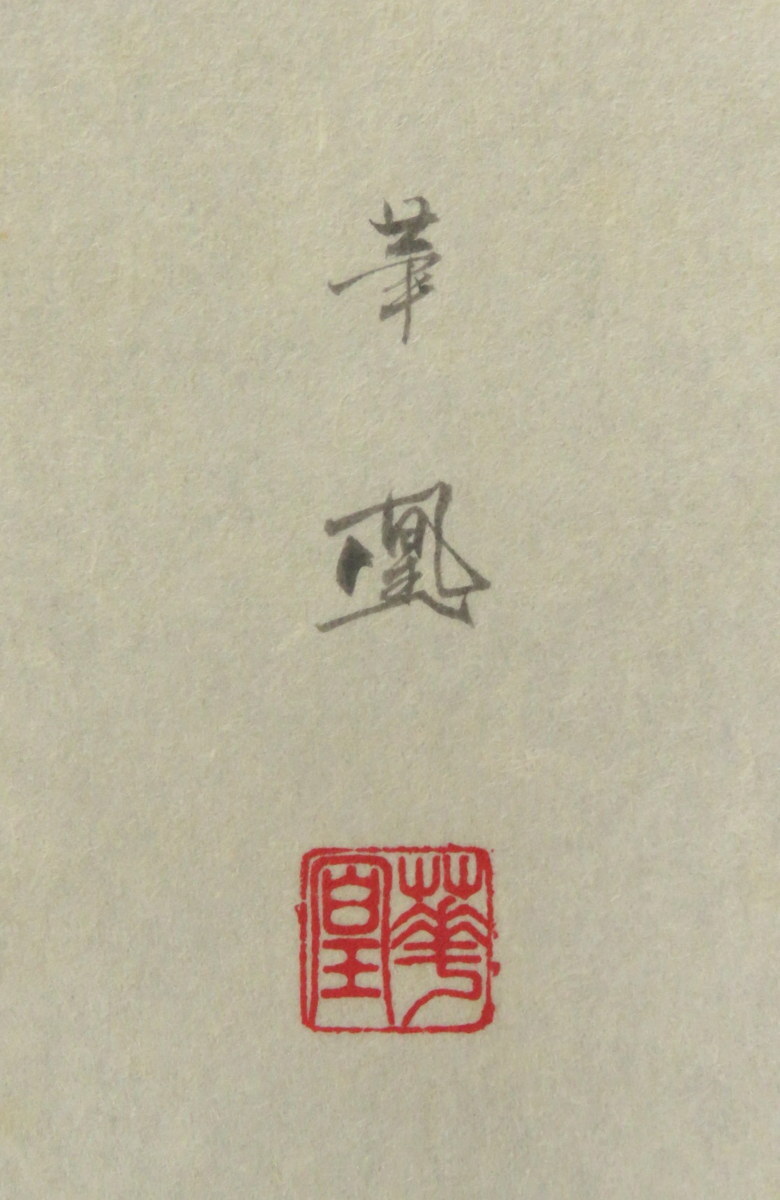 華凰
華凰